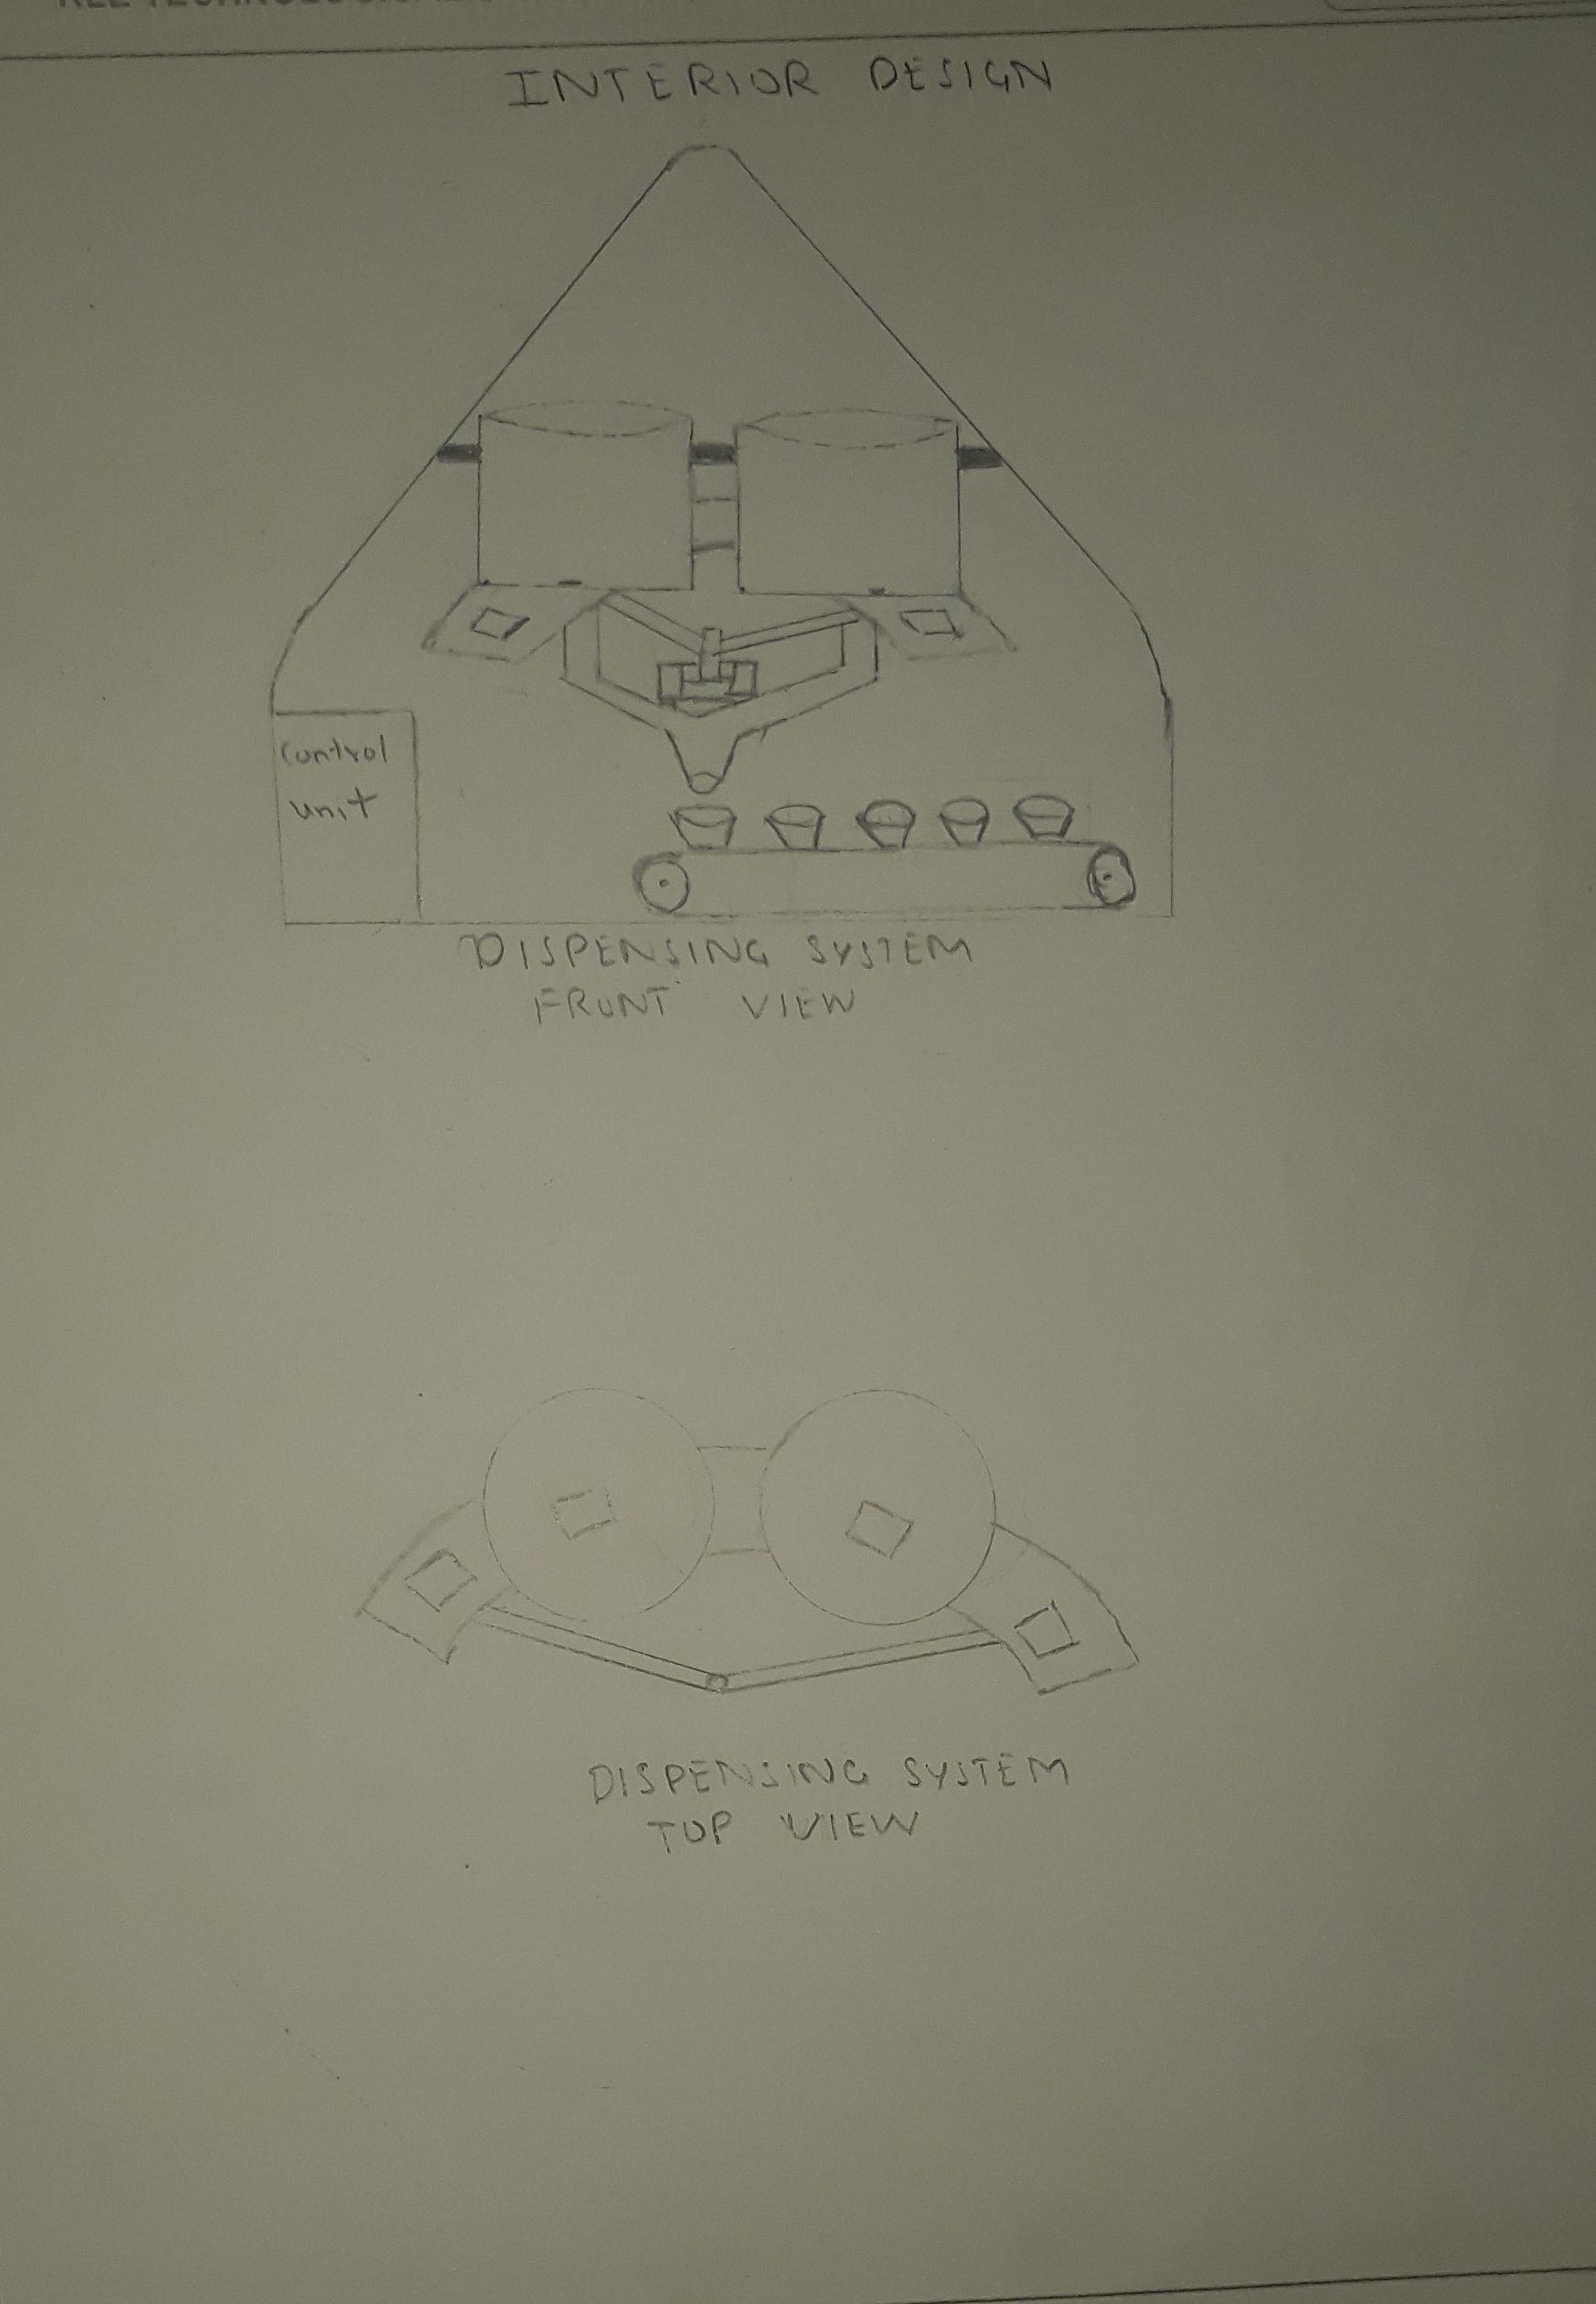 INTERIOR DESIGN
control
unit
DISPENSING SYSTEM
FRONT VIEW
DISPENSING SYSTEM
TOP VIEW